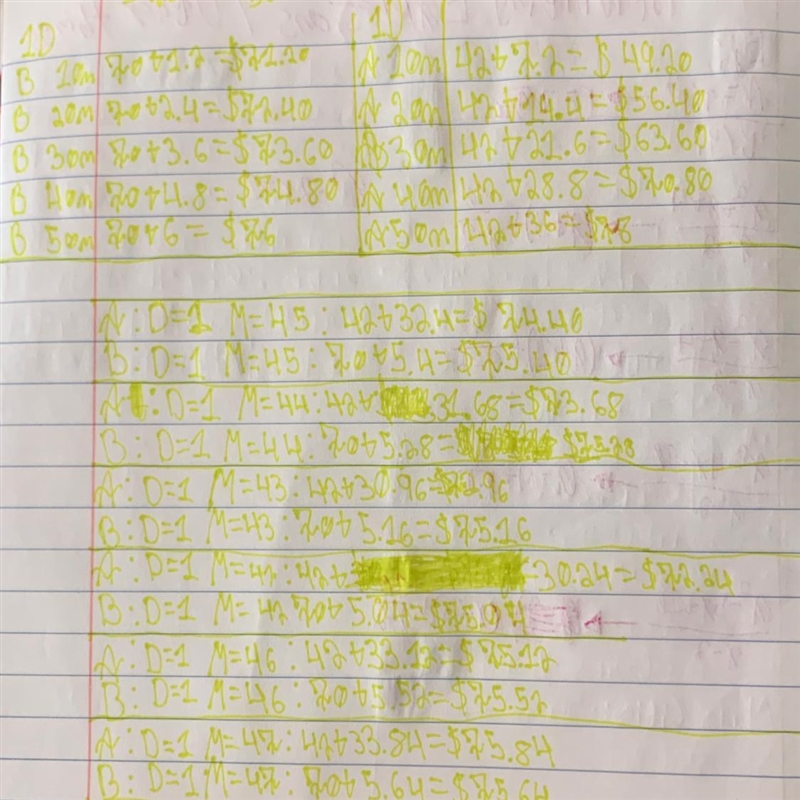 1D 1D
B 10m 70+1.2=$71.20 A 10m 42+7.2=$49.20
B 20m 70+2.4=$72.40 A 20m 42+14.4=$56.40
B 30m 70+3.6=$73.60 A 30m 42+21.6=$63.60
B 40m 70+4.8=$74.80 A 40m 42+28.8=$70.80
B 50m 70+6=$76 A 50m 42+36=$78
A: D=1 M=45: 42+32.4=$74.40
B: D=1 M=45: 70+5.4=$75.40
A: D=1 M=44: 42+31.68=$73.68
B: D=1 M=44: 70+5.28= $75.28
A: D=1 M=43: 42+30.96=$72.96
B: D=1 M=43: 70+5.16=$75.16
A: D=1 M=42: 42+ 30.24=$72.24
B: D=1 M=42 70+5.04=$75.04
A: D=1 M=46: 42+33.12=$75.12
B: D=1 M=46: 70+5.52=$75.52
A: D=1 M=47: 42+33.84=$75.84
B: D=1 M=47: 70+5.64=$75.64